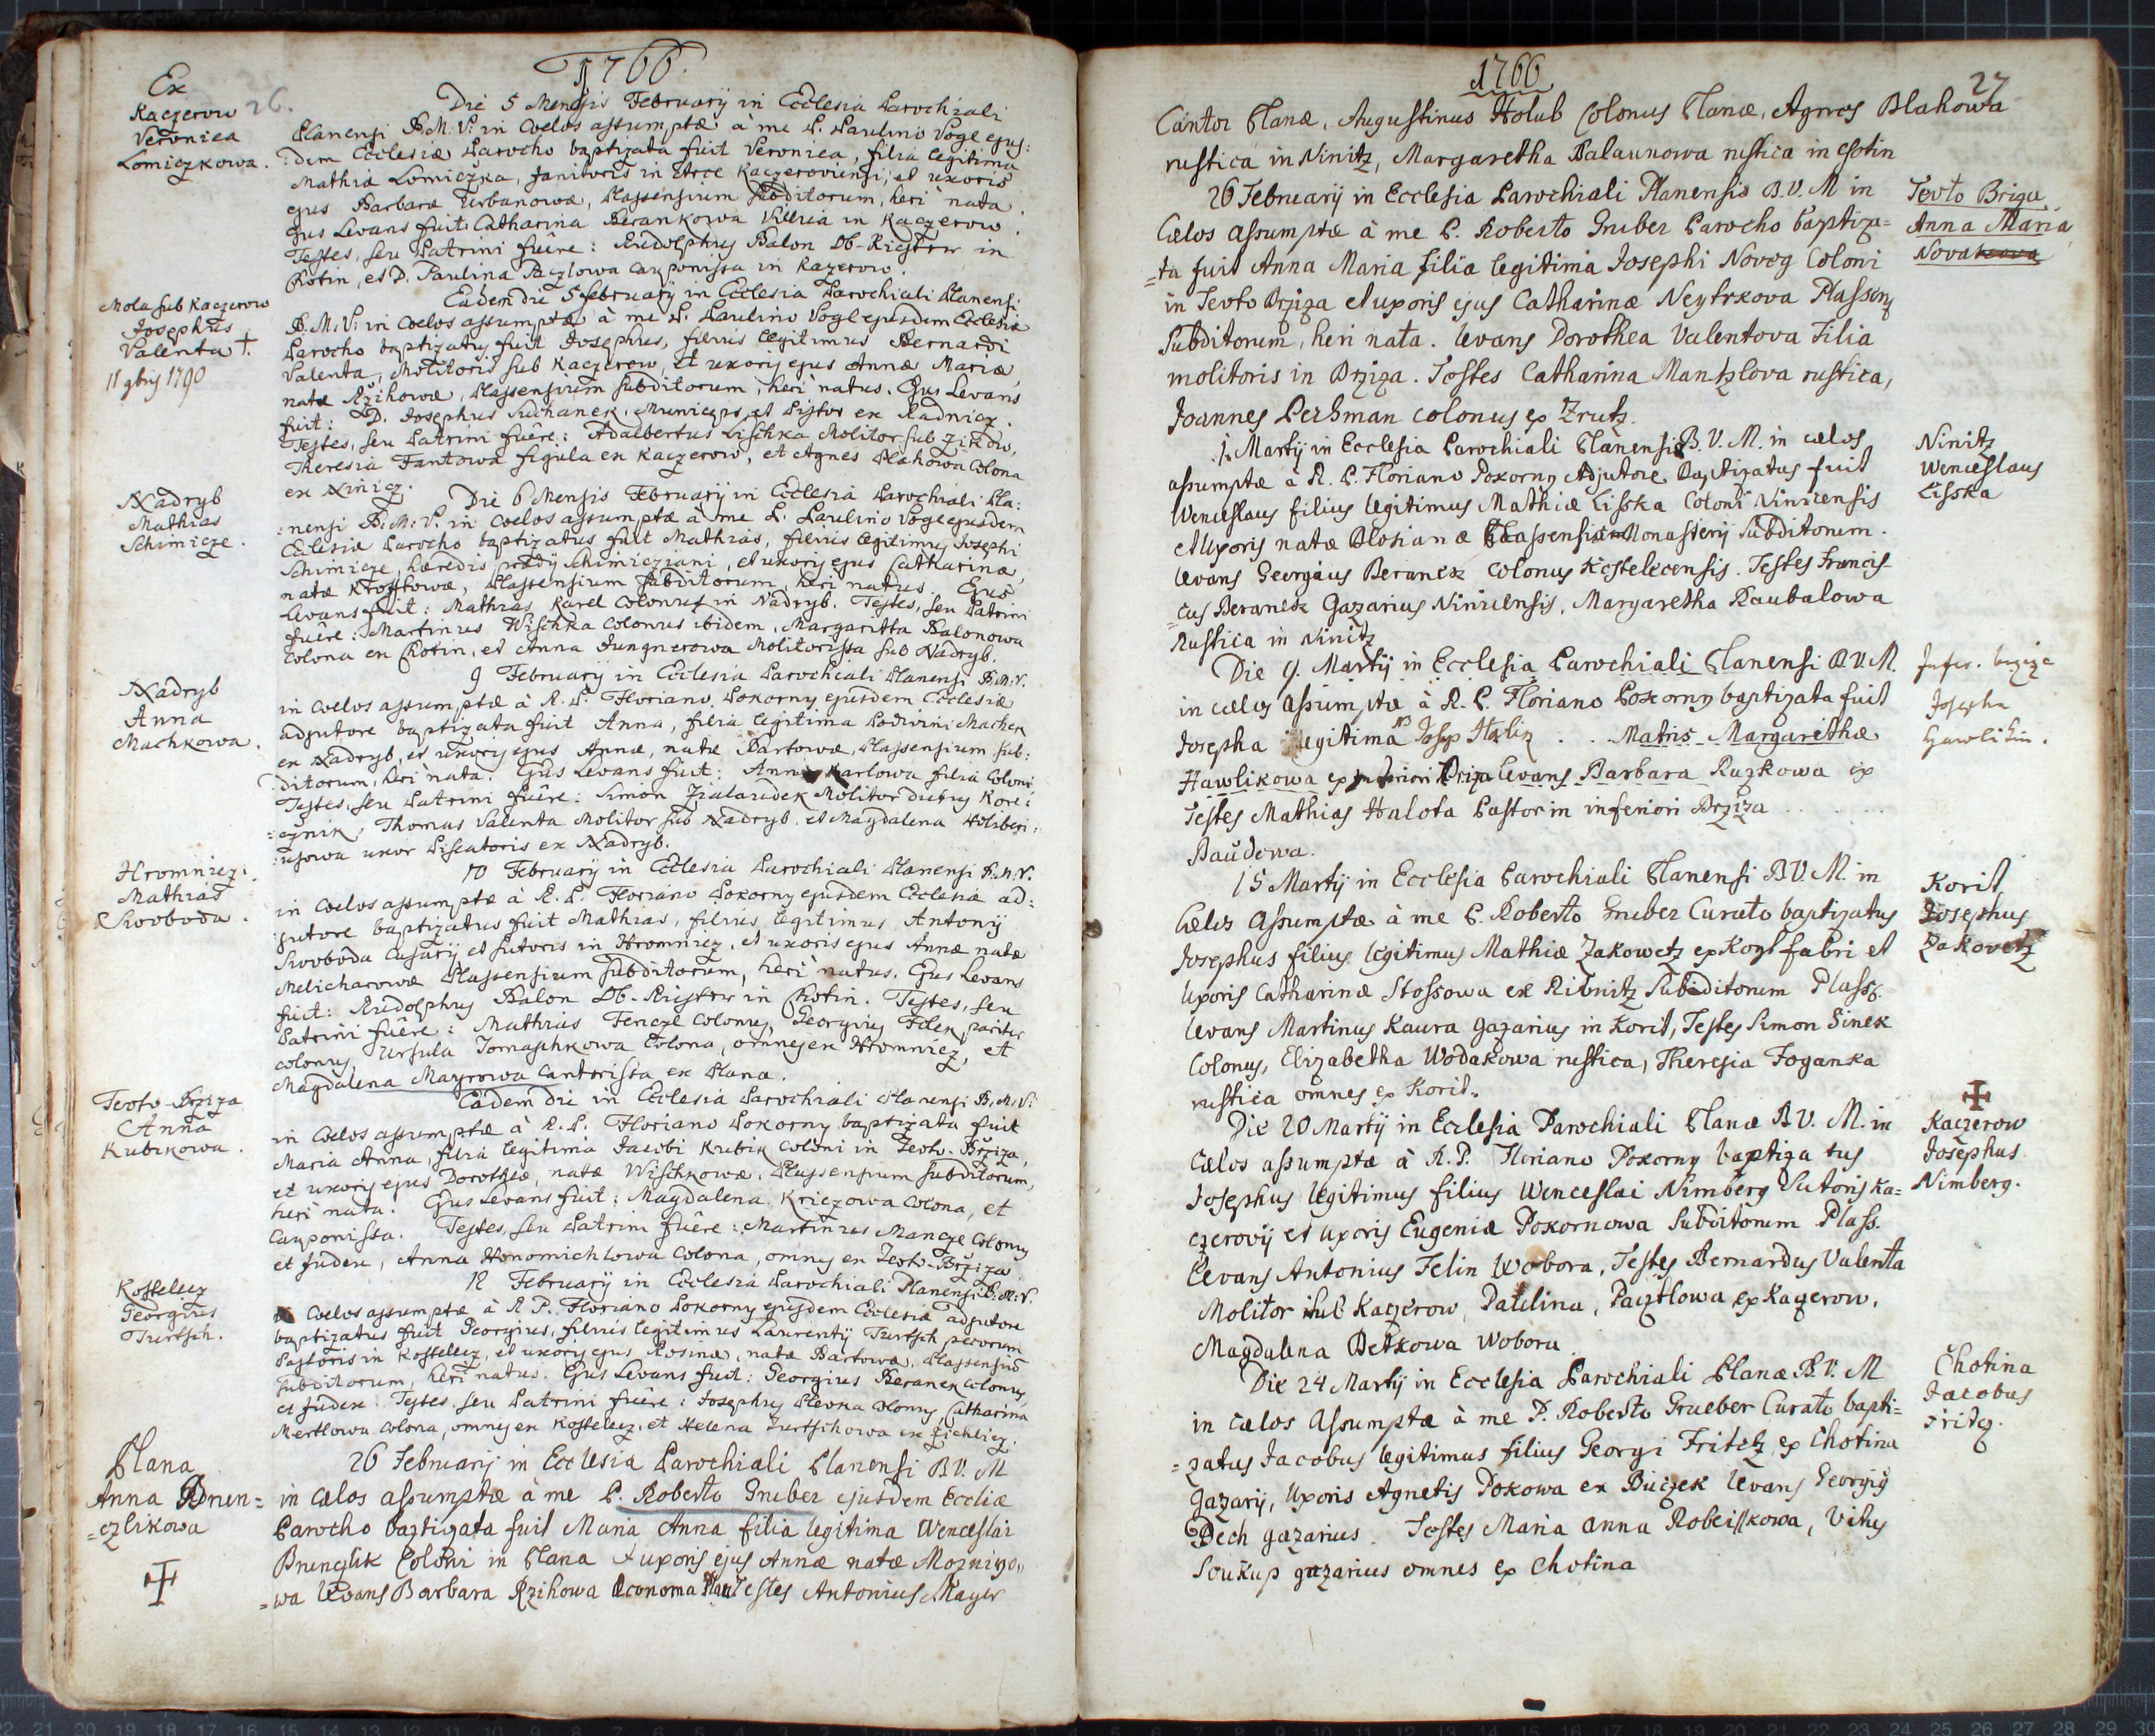 1766.
Ex
Kaczerow 26.
Veronica
Lomiczkowa.
Die 5 Mensis February in Ecclesia Parochiali
Planensi B.M.V. in Coelos assumptæ à me P. Paulino Vogl ejus:
:dem Ecclesiæ Parocho baptizata fuit Veronica, filia legitima
Mathiæ Lomiczka, Janitoris in Arce Kaczeroviensi, et uxoris
ejus Barbaræ Urbanowæ, Plassensium subditorum, heri nata.
Ejus Levans fuit: Catharina Berankowa Villica in Kaczerow.
Testes, seu Patrini fuêre: Rudolphus Balon Ob-Richter in
Chotin, et D. Paulina Paczlowa Cauponissa in Kazerow.
Mola sub Kaczerow
Josephus
Valenta †.
11 9bris 1790
Eadem die 5 february in Ecclesia Parochiali Planensi
B.M.V. in Coelos assumptæ à me P. Paulino Vogl ejusdem Ecclesiæ
Parocho baptizatus fuit Josephus, filius legitimus Bernardi
Valenta, Molitoris sub Kaczerow, et uxoris ejus Annæ Mariæ,
natæ Rzihowæ, Plassensium subditorum, heri natus. Ejus Levans
fuit: D. Josephus Suchanek, Municeps, et Pistor ex Radnicz.
Testes, seu Patrini fuêre: Adalbertus Lischka Molitor sub Zikow,
Theresia Fantowa figula ex Kaczerow, et Agnes Blahowa Colona
ex Ninicz.
Nadryb
Mathias
Schimicze.
Die 6 Mensis February in Ecclesia Parochiali Pla:
:nensi B:M:V. in Coelos assumptæ à me P. Paulino Vogl ejusdem
Ecclesiæ Parocho baptizatus fuit Mathias, filius legitimus Josephi
Schimicze, hæredis prædy Schimicziani, et uxoris ejus Catharinæ,
natæ Krosstowæ, Plassensium subditorum, heri natus. Ejus
Levans fuit: Mathias Karel Colonus in Nadryb. Testes, seu Patrini
fuêre: Martinus Wischka Colonus ibidem, Margaritta Balonowa
Colona ex Chotin, et Anna Jungnerowa Molitorissa sub Nadryb.
Nadryb
Anna
Machkowa.
9 February in Ecclesia Parochiali Planensi B.M.V.
in Coelos assumptæ à R.P. Floriano Pokorny ejusdem Ecclesiæ
adjutore baptizata fuit Anna, filia legitima Machek
ex Nadryb, et uxoris ejus Annæ, natæ Bartowæ, Plassensium sub:
:ditorum, heri nata. Ejus Levans fuit: Anna Karlowa filia Coloni
Testes, seu Patrini fuêre: Simon Molitor dictus Kore:
:cznik, Thomas Valenta Molitor sub Nadryb, et Magdalena
uxor Piscatoris ex Nadryb.
Hromnicz:
Mathias
Swoboda.
10 February in Ecclesia Parochiali Planensi B.M.V.
in Coelos assumptæ à R.P. Floriano Pokorny ejusdem Ecclesiæ ad:
jutore baptizatus fuit Mathias, filius legitimus Antony
Swoboda Casary et Sutoris in Hromnicz, et uxoris ejus Annæ natæ
Melicharowæ Plassensium subditorum, heri natus. Ejus Levans
fuit: Rudolphus Balon Ob-Richter in Chotin. Testes, seu
Patrini fuêre: Mathias Fenczl Colonus, Georgius Filek pariter
colonus, Ursula Tomaschkowa Colona, omnes ex Hromnicz, et
Magdalena Mayrowa Cantorissa ex Plana.
Teoto-Brziza
Anna
Kubikowa.
Eadem die in Ecclesia Parochiali Planensi B.M.V.
in Coelos assumptæ à R.P. Floriano Pokorny baptizata fuit
Maria Anna, filia legitima Jacobi Kubik Coloni in Teoto-Brziza,
et uxoris ejus Dorotheæ, natæ Wischkowæ, Plassensium subditorum,
heri nata. Ejus Levans fuit: Magdalena Kriczowa Colona, et
Cauponissa. Testes, seu Patrini fuêre: Martinus Manczl Colonus
et Judex, Anna Honomichlowa Colona, omnes ex Teoto-Brziza.
Kostelecz
Georgius
Turtsch.
12 February in Ecclesia Parochiali Planensi B:M:V.
Coelos assumptæ à R.P. Floriano Pokorny ejusdem Ecclesiæ adjutore
baptizatus fuit Georgius, filius legitimus Laurenty Turtsch pecorum
Pastoris in Kostelecz, et uxoris ejus Rosinæ, natæ Bartowæ, Plassensiũ
subditorum, heri natus. Ejus Levans fuit: Georgius Beranek Colonus,
et Judex. Testes, seu Patrini fuêre: Josephus Plevka Colonus Catharina
Mertlowa Colona, omnes ex Kostelecz, et Helena Turtschowa ex Zichlicz.
Plana
Anna Brun=
=czlikowa
26 February in Ecclesia Parochiali Planensi B.V.M
in cælos assumptæ à me P. Roberto Gruber ejusdem Eccliæ
Parocho baptizata fuit Maria Anna filia legitima Wenceslai
Brunczlik Coloni in Plana & uxoris ejus Annæ natæ
=wa Levans Barbara Rzihowa Oeconoma Plan Testes Antonius Mayer
1766
27
Cantor Planæ, Augustinus Holub Colonus Planæ, Agnes Blahowa
rustica in Ninitz, Margaretha Balaunowa rustica in Chotin
Teoto Briza
Anna Maria
Novakowa
26 February in Ecclesia Parochiali Planensis B.V.M in
Cælos assumptæ à me P. Roberto Gruber Parocho baptiza=
=ta fuit Anna Maria filia legitima Josephi Novog Coloni
in Teoto Brziza et uxoris ejus Catharinæ Neytrkova Plassens
Subditorum, heri nata. Levans Dorothea Valentova Filia
molitoris in Brziza. Testes Catharina Mantzlova rustica,
Joannes Pershman colonus ex Zrutz.
Ninitz
Wenceslaus
Lisska
1. Marty in Ecclesia Parochiali Planensis B.V.M. in cælos
assumptæ à R.P. Floriano Pokorny Adjutore Baptizatus fuit
Wenceslaus filius legitimus Mathiæ Lisska Coloni Ninicensis
et Uxoris natæ Blosianæ Plassensium Monastery Subditorum.
Levans Georgius Beranek Colonus Kostelecensis. Testes Francis-
=cus Beranek Gazarius Ninicensis, Margaretha Raubalowa
Rustica in Ninitz
Infer. brzize
Josepha
Hawlikin.
Die 9. Marty in Ecclesia Parochiali Planensi B.V.M.
in cælos assumptæ à R.P. Floriano Pokorny baptizata fuit
Josepha legitima . . Matris Margarethæ
Hawlikowa ex inferiori Briza Levans Barbara Ruzkowa ex
Testes Mathias Halota Pastor in inferiori Brziza . . . . . .
Baudowa.
Korit
Josephus
Zakovetz
15 Marty in Ecclesia Parochiali Planensi B.V.M. in
Cælos assumptæ à me P. Roberto Gruber Curato baptizatus
Josephus filius legitimus Mathiæ Zakowetz ex Korit fabri et
Uxoris Catharinæ Stossowa ex Ribnitz Subditorum Plass.
Levans Martinus Kaura gazarius in Korit, Testes Simon Sinek
Colonus, Elizabetha Wodakowa rustica, Theresia Foganka
rustica omnes ex Korit.
Kaczerow
Josephus
Nimberg.
Die 20 Marty in Ecclesia Parochiali Planæ B.V.M. in
Cælos assumptæ à R.P. Floriano Pokorny baptiza tus
Josephus legitimus filius Wenceslai Nimberg Sutoris Ka=
czerovij et Uxoris Eugeniæ Pokornowa Subditorum Plass.
Levans Antonius Felin Wobora, Testes Bernardus Valenta
Molitor sub Kaczerow, Paulina, Pacztlowa ex Kazerow.
Magdalena Betkowa Wobora.
Chotina
Jacobus
Fritz.
Die 24 Marty in Ecclesia Parochiali Planæ B.V.M
in cælos assumptæ à me P. Roberto Grueber Curato bapti=
=zatus Jacobus legitimus filius Georgi Fritz ex Chotina
gazarij, Uxoris Agnetis Pokowa ex Buczek Levans Georgig
Pech gazarius. Testes Maria Anna Robeisskowa, Vitus
Soukup gazarius omnes ex Chotina